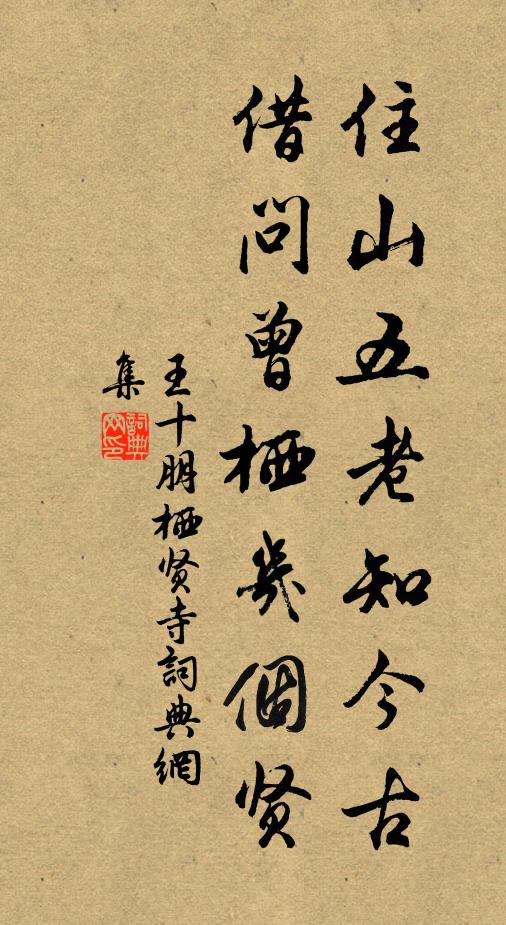 住山五老知今古
借問曾栖幾個贤
王十朋栖贤寺詞典網
集
詞典
网印